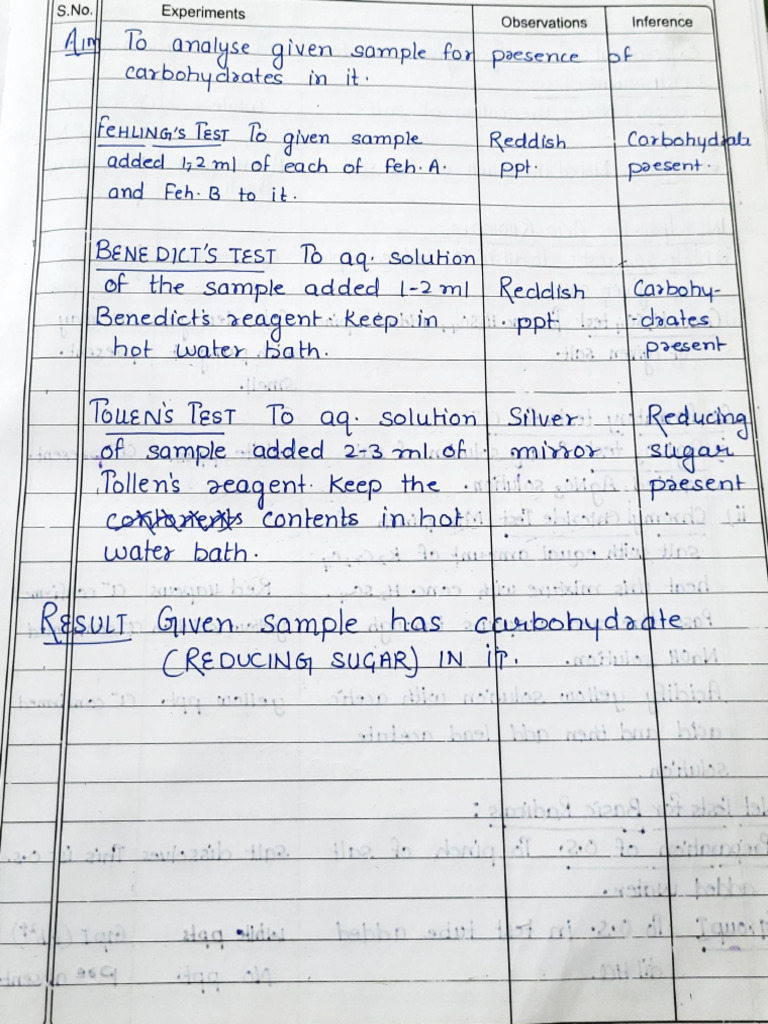 S.No. Experiments Observations Inference
Aim To analyse given sample for presence of
carbohydrates in it.
FEHLING'S TEST To given sample Reddish Carbohydrate
added 1,2 ml of each of Feh. A. ppt. present.
and Feh. B to it.
BENEDICT'S TEST To aq. solution
of the sample added 1-2 ml Reddish Carbohy-
Benedict's reagent. Keep in ppt. -drates
hot water bath. present
TOLLEN'S TEST To aq. solution Silver Reducing
of sample added 2-3 ml of mirror sugar
Tollen's reagent. Keep the present
contents in hot
water bath.
RESULT Given sample has carbohydrate
(REDUCING SUGAR) IN IT.